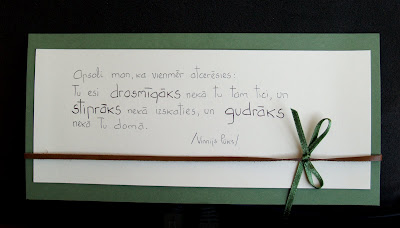 Apsoli man, ka vienmēr atcerēsies:
Tu esi drosmīgāks nekā tu tam tici, un
stiprāks nekā izskaties, un gudrāks
nekā Tu domā.
/Vinnijs Pūks/